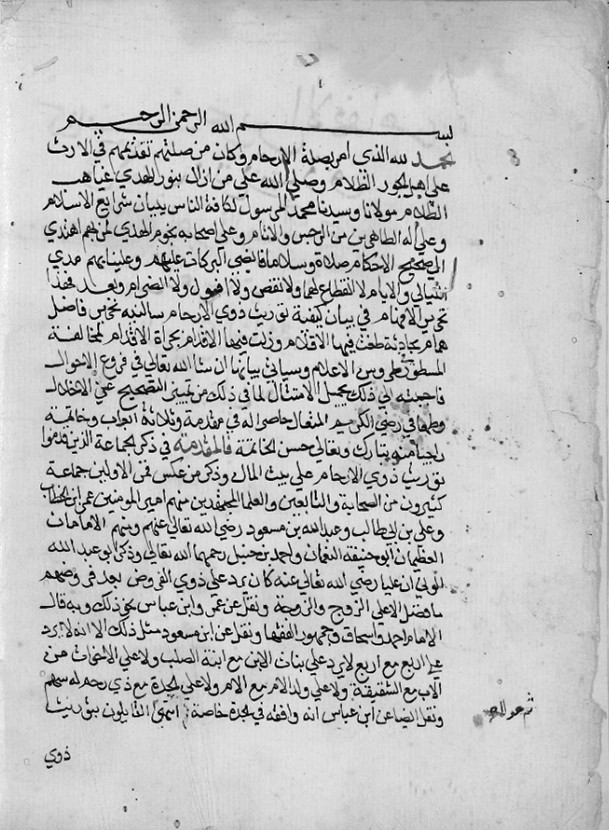 بسم الله الرحمن الرحيم
نحمد لله الذي امر بصلة الارحام وكان من صلتهم تقديمهم في الارث
على اهل الجور الظلام وصلى الله على من ازال بنور الهدى غياهب
الظلام مولانا وسيدنا محمد المرسول لكافة الناس ببيان شرايع الاسلام
وعلى اله الطاهرين من الرجس والانام وعلى اصحابه نجوم الهدى لمن بهم اهتدى
لصحيح الاحكام صلاة وسلاما فايضي البركات عليهم وعلينا بهم مدى
الليالي والايام لا انقطاع لهما ولا نقص ولا ولا انصرام وبعد فهذا
في بيان كيفية توريث ذوي الارحام سالنيه فاضل
همام بحادثة طغت فيها الاقلام وزلت فيها الاقدام بجراة الاقدام لمخالفة
المسطور الاعلام وسياتي بيانها ان شا الله تعالى في فروع الاخوال
فاجبته الى ذلك الامتثال لما في ذلك من تبيين الصحيح عن الاعتلال
وطمعا في رضى الكريم المتعال حاصر اله في مقدمة وثلاثة ابواب وخاتمة
راجيا منه تبارك وتعالى حسن الخاتمة فالمقدمة في ذكر الجماعة الذين قدموا
توريث ذوي الارحام على بيت المال وذكر من عكس فمن الاولين جماعة
كثيرون من الصحابة والتابعين والعلما المجتهدين منهم امير المومنين عمر ابن الخطاب
وعلي بن ابي طالب وعبد الله بن مسعود رضي الله تعالى عنهم ومنهم الامامان
العظيمان ابو حنيفة النعمان واحمد بن حنبل رحمهما الله تعالى وذكر ابو عبد الله
الوني ان عليا رضي الله تعالى عنه كان يرد على ذوي الفروض بعد فروضهم
ما فضل الا على الزوج والزوجة ونقل عن عمر وابن عباس نحو ذلك وبه قال
الامام احمد واسحاق وجمهور الفقها ونقل عن ابن مسعود مثل ذلك الا انه لا يرد
على اربع مع اربع لا يرد على بنات الابن مع ابنة الصلب ولا على الاخوات من
الاب مع الشقيقة ولا على ولد الام مع الام ولا على الجدة مع ذي رحم له سهم
ونقل ايضا عن ابن عباس انه وافقه في الجدة خاصة انتهى القايلون بتوريث
ذوي